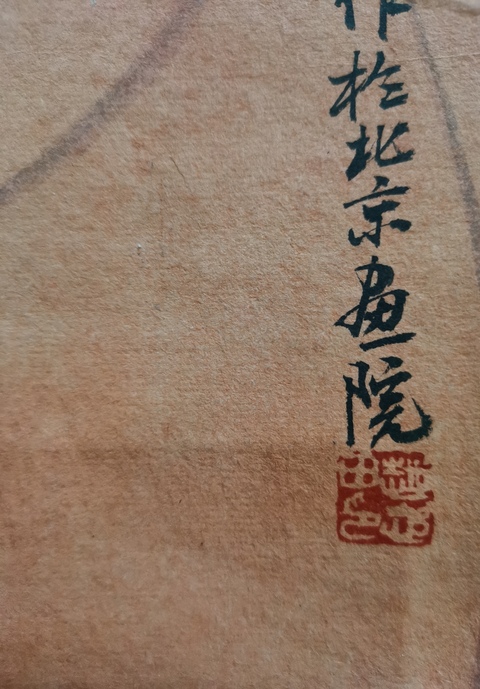 作於北京畫院